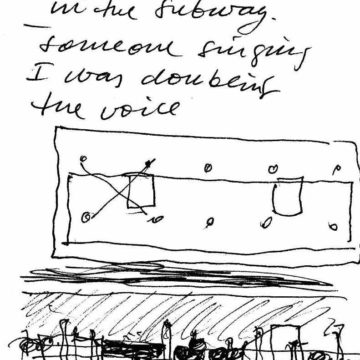 in the subway.
_ someone singing
I was doubling
the voice